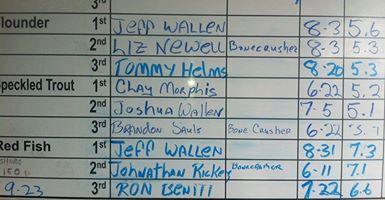 3rd
lounder 1st Jeff Wallen 8-3 5.6
2nd Liz Newell Bonecrusher 8-3 5.3
3rd Tommy Helms 8-20 5.3
peckled Trout 1st Chay Morphis 6-22 5.2
2nd Joshua Wallen 7-5 5.1
3rd Brandon Sauls Bone Crusher 6-22
Red Fish 1st Jeff Wallen 8-31 7.3
2nd Johnathan Rickey Bonecrusher 6-11 7.1
9.23 3rd Ron 7.22 6.6